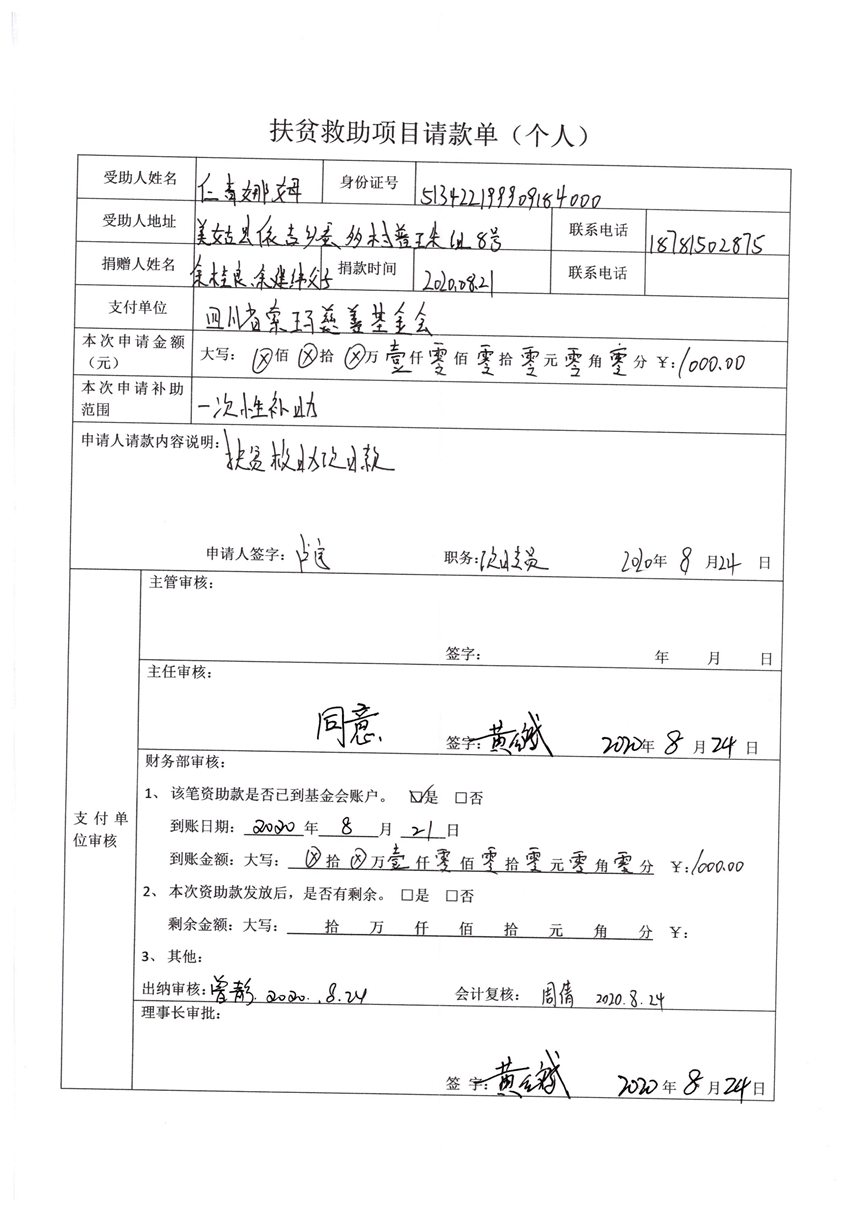 扶贫救助项目请款单（个人）
受助人姓名 仁青娜姆 身份证号 513422199909184000
受助人地址 8号 联系电话 18781502875
捐赠人姓名 余桂良、余建伟父子 捐款时间 2020.08.21 联系电话
支付单位 四川省索玛慈善基金会
本次申请金额（元） 大写： ⓧ佰 ⓧ拾 ⓧ万 壹仟 零佰 零拾 零元 零角 零分 ￥：1000.00
本次申请补助范围 一次性补助
申请人请款内容说明：扶贫救助项目款
申请人签字： 职务：项目专员 2020年 8 月24 日
支付单位审核
主管审核：
签字： 年 月 日
主任审核：
同意
签字：黄红斌 2020年 8 月24日
财务部审核：
1、 该笔资助款是否已到基金会账户。 ☑是 □否
到账日期： 2020 年 8 月 21 日
到账金额：大写： ⓧ拾 ⓧ万 壹仟 零佰 零拾 零元 零角 零分 ￥：1000.00
2、 本次资助款发放后，是否有剩余。 □是 □否
剩余金额：大写： 拾 万 仟 佰 拾 元 角 分 ￥：
3、 其他：
出纳审核：曾静 2020. .8.24 会计复核： 周倩 2020.8.24
理事长审批：
签 字：黄红斌 2020年 8 月24日